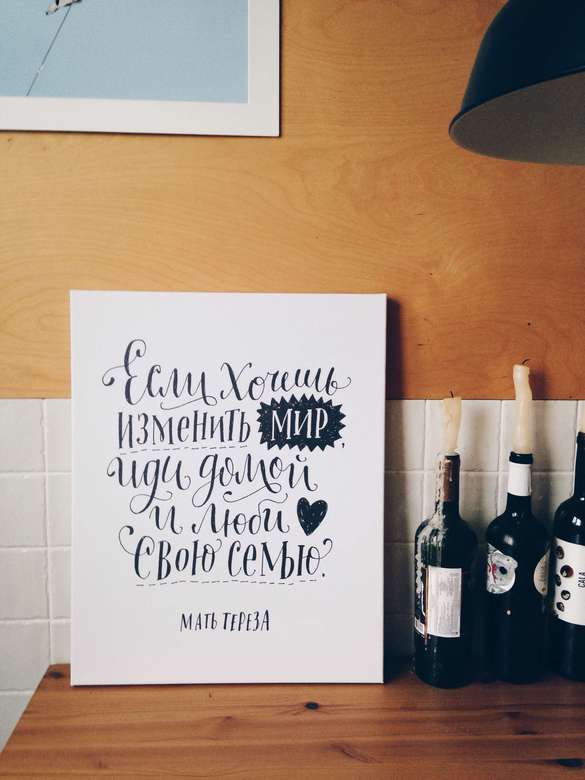 Если хочешь
изменить МИР,
иди домой
и люби
свою семью.
МАТЬ ТЕРЕЗА
CALA